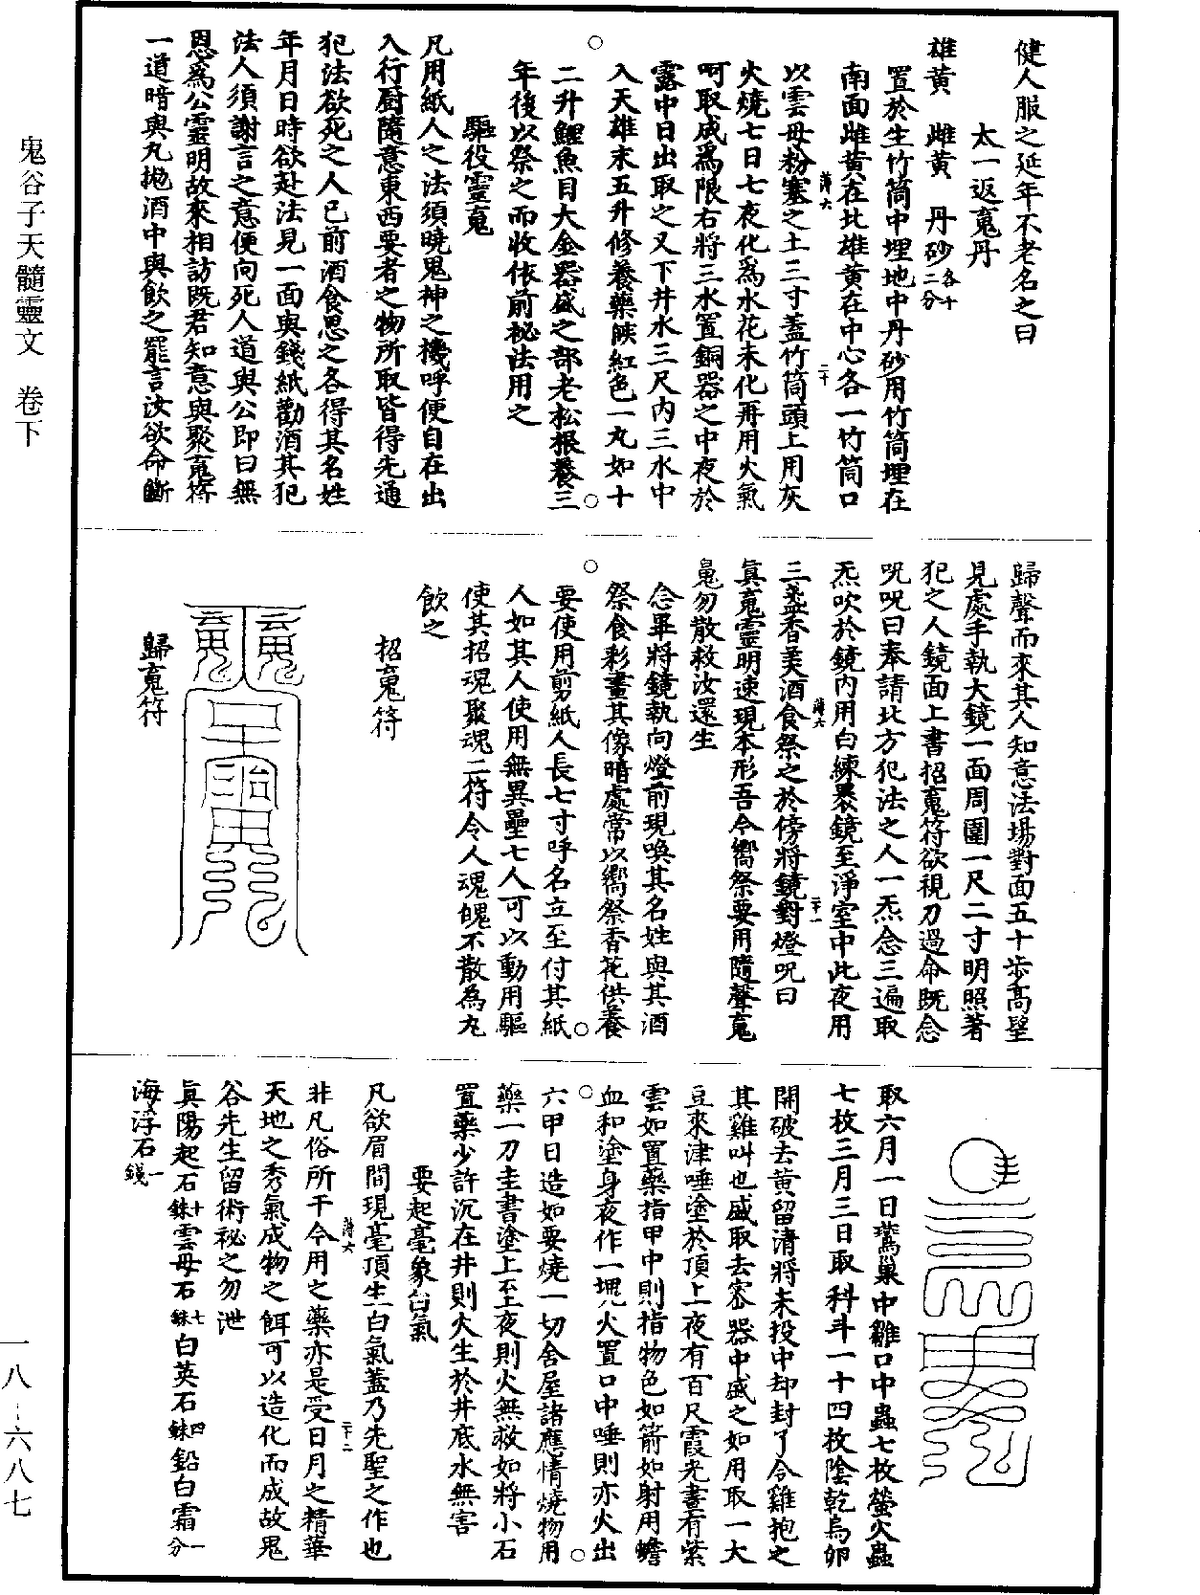 健人服之延年不老名之曰
太一返䰟丹
雄黃　雌黃　丹砂各十二分
置於生竹筒中埋地中丹砂用竹筒埋在
南面雌黃在北雄黃在中心各一竹筒口
以雲母粉塞之土三寸蓋竹筒頭上用灰
火燒七日七夜化爲水花未化再用火氣
呵取成爲限右將三水置銅器之中夜於
露中日出取之又下井水三尺內三水中
入天雄末五升修養藥候紅色一丸如十
二升鯉魚目大金器盛之部老松根養三
年後以祭之而收依前祕法用之
驅役靈䰟
凡用紙人之法須曉鬼神之機呼便自在出
入行厨隨意東西要者之物所取皆得先通
犯法欲死之人已前酒食恩之各得其名姓
年月日時欲赴法見一面與錢紙勸酒其犯
法人須謝言之意便向死人道與公即曰無
恩爲公靈明故來相訪既君知意與聚䰟符
一道暗與丸抛酒中與飲之罷言汝欲命斷
歸聲而來其人知意法場對面五十步高堅
見處手執大鏡一面周圍一尺二寸明照著
犯之人鏡面上書招䰟符欲視刀過命既念
呪呪曰奉請北方犯法之人一炁念三遍取
炁吹於鏡內用白練裹鏡至淨室中此夜用
三盞香美酒食祭之於傍將鏡對燈呪曰
真䰟靈明速現本形吾今嚮祭要用隨聲䰟
鬼勿散救汝還生
念畢將鏡執向燈前現喚其名姓與其酒
祭食彩畫其像暗處常以嚮祭香花供養
要使用剪紙人長七寸呼名立至付其紙
人如其人使用無異壘七人可以動用驅
使其招魂聚魂二符令人魂魄不散為丸
飲之
招䰟符
歸䰟符
取六月一日鷰巢中雛口中蟲七枚螢火蟲
七枚三月三日取科斗一十四枚陰乾烏卵
開破去黃留清將末投中却封了令雞抱之
其雞叫也盛取去密器中盛之如用取一大
豆來津唾塗於頂上夜有百尺霞光晝有紫
雲如置藥指甲中則指物色如箭如射用蟾
血和塗身夜作一塊火置口中唾則亦火出
六甲日造如要燒一切舍屋諸應情燒物用
藥一刀圭書塗上至夜則火無救如將小石
置藥少許沉在井則火生於井底水無害
要起毫象白氣
凡欲眉間現毫頂生白氣蓋乃先聖之作也
非凡俗所干今用之藥亦是受日月之精華
天地之秀氣成物之餌可以造化而成故鬼
谷先生留術祕之勿泄
真陽起石十銖雲母石七銖白英石四銖鉛白霜一分
海浮石一錢
薄六
二十
薄六
二十一
薄六
二十二
鬼谷子天髓靈文　卷下
一八－六八七